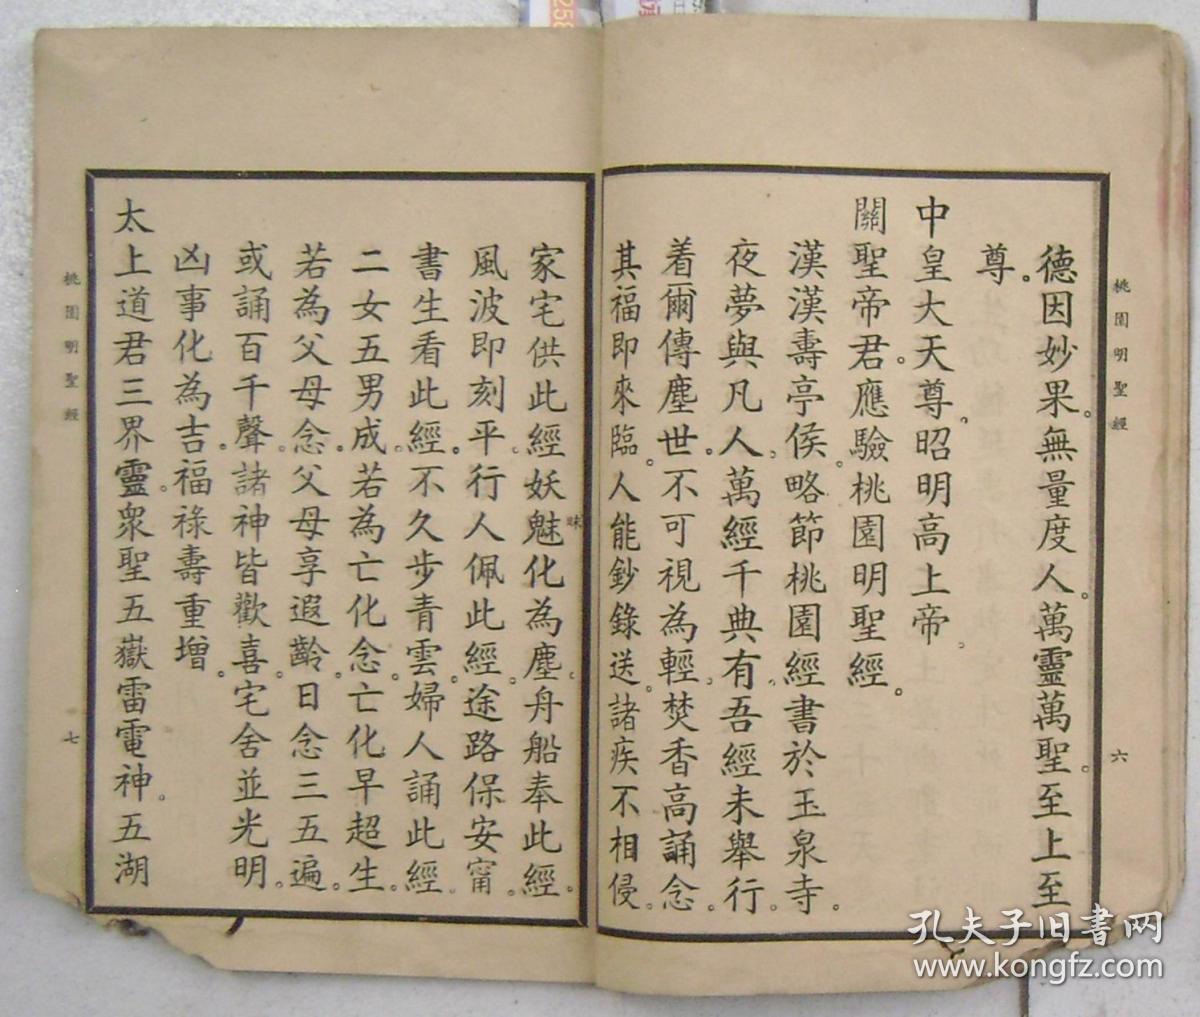 桃園明聖經
六
德因妙果。無量度人。萬靈萬聖。至上至
尊。
中皇大天尊。昭明高上帝。
關聖帝君。應驗桃園明聖經。
漢漢壽亭侯。略節桃園經書於玉泉寺。
夜夢與凡人。萬經千典有吾經未舉行。
着爾傳塵世。不可視為輕。焚香高誦念。
其福即來臨。人能鈔錄送。諸疾不相侵。
家宅供此經。妖魅化為塵。舟船奉此經。
昧
風波即刻平。行人佩此經。途路保安甯。
書生看此經。不久步青雲。婦人誦此經。
二女五男成。若為亡化念。亡化早超生。
若為父母念。父母享遐齡。日念三五遍。
或誦百千聲。諸神皆歡喜。宅舍並光明。
凶事化為吉。福祿壽重增。
太上道君三界靈。眾聖五嶽雷電神。五湖
桃園明聖經
七
孔夫子旧书网
www.kongfz.com